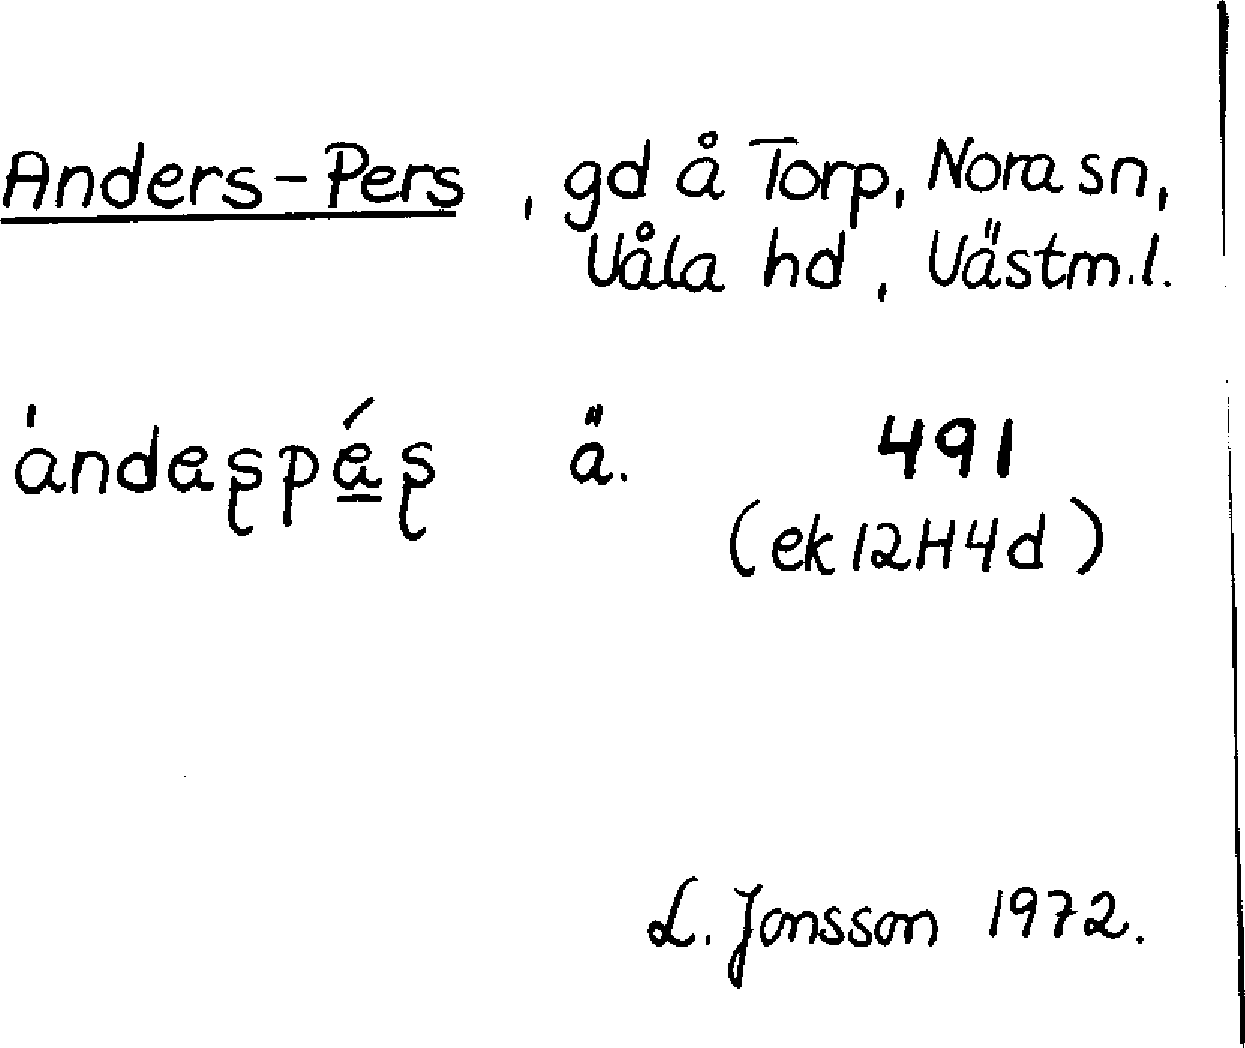 Anders-Pers, gd å Torp, Nora sn,
Våla hd, Västm.l.
àndaʂpǽ̱ʂ ä. 491
(ek 12H4d)
L. Jonsson 1972.